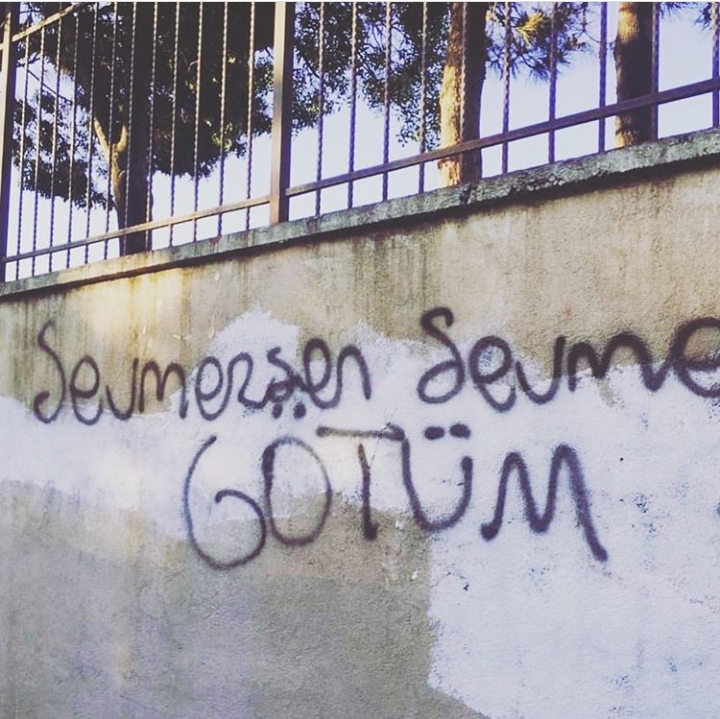 Sevmezsen Sevme
GÖTÜM